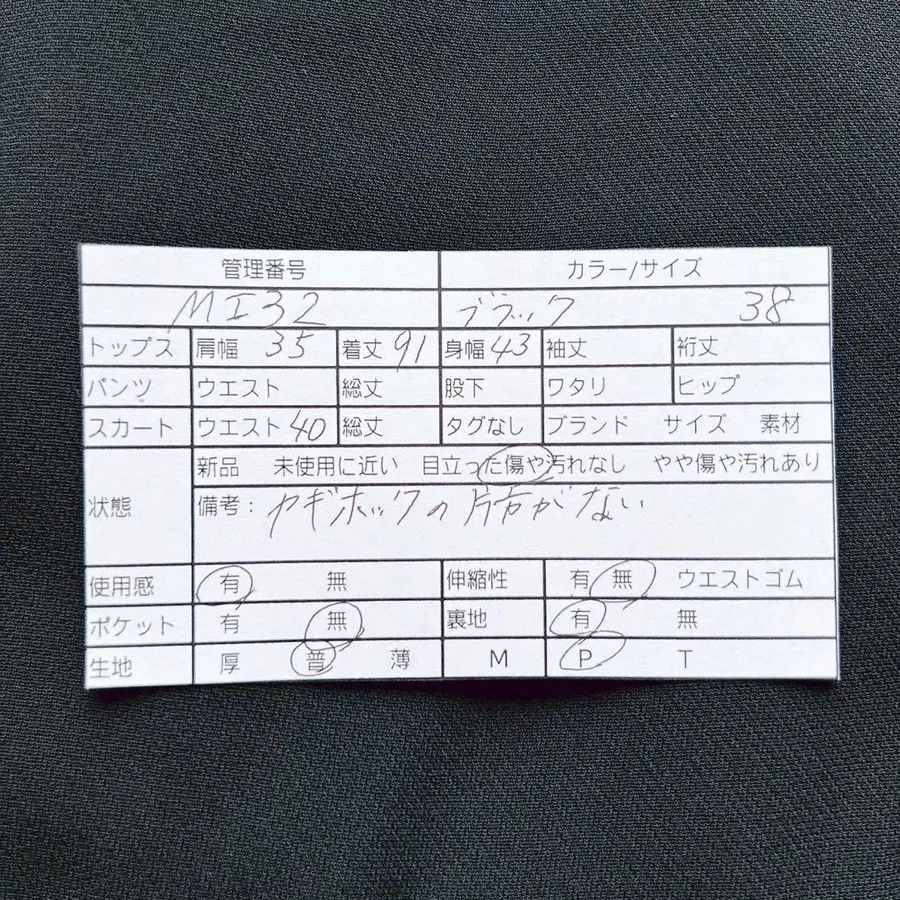 管理番号 カラー/サイズ
MI32 ブラック 38
トップス 肩幅 35 着丈 91 身幅 43 袖丈 裄丈
パンツ ウエスト 総丈 股下 ワタリ ヒップ
スカート ウエスト 40 総丈 タグなし ブランド サイズ 素材
状態 新品 未使用に近い 目立った傷や汚れなし やや傷や汚れあり
備考: カギホックの片方がない
使用感 有 無 伸縮性 有 無 ウエストゴム
ポケット 有 無 裏地 有 無
生地 厚 普 薄 M P T